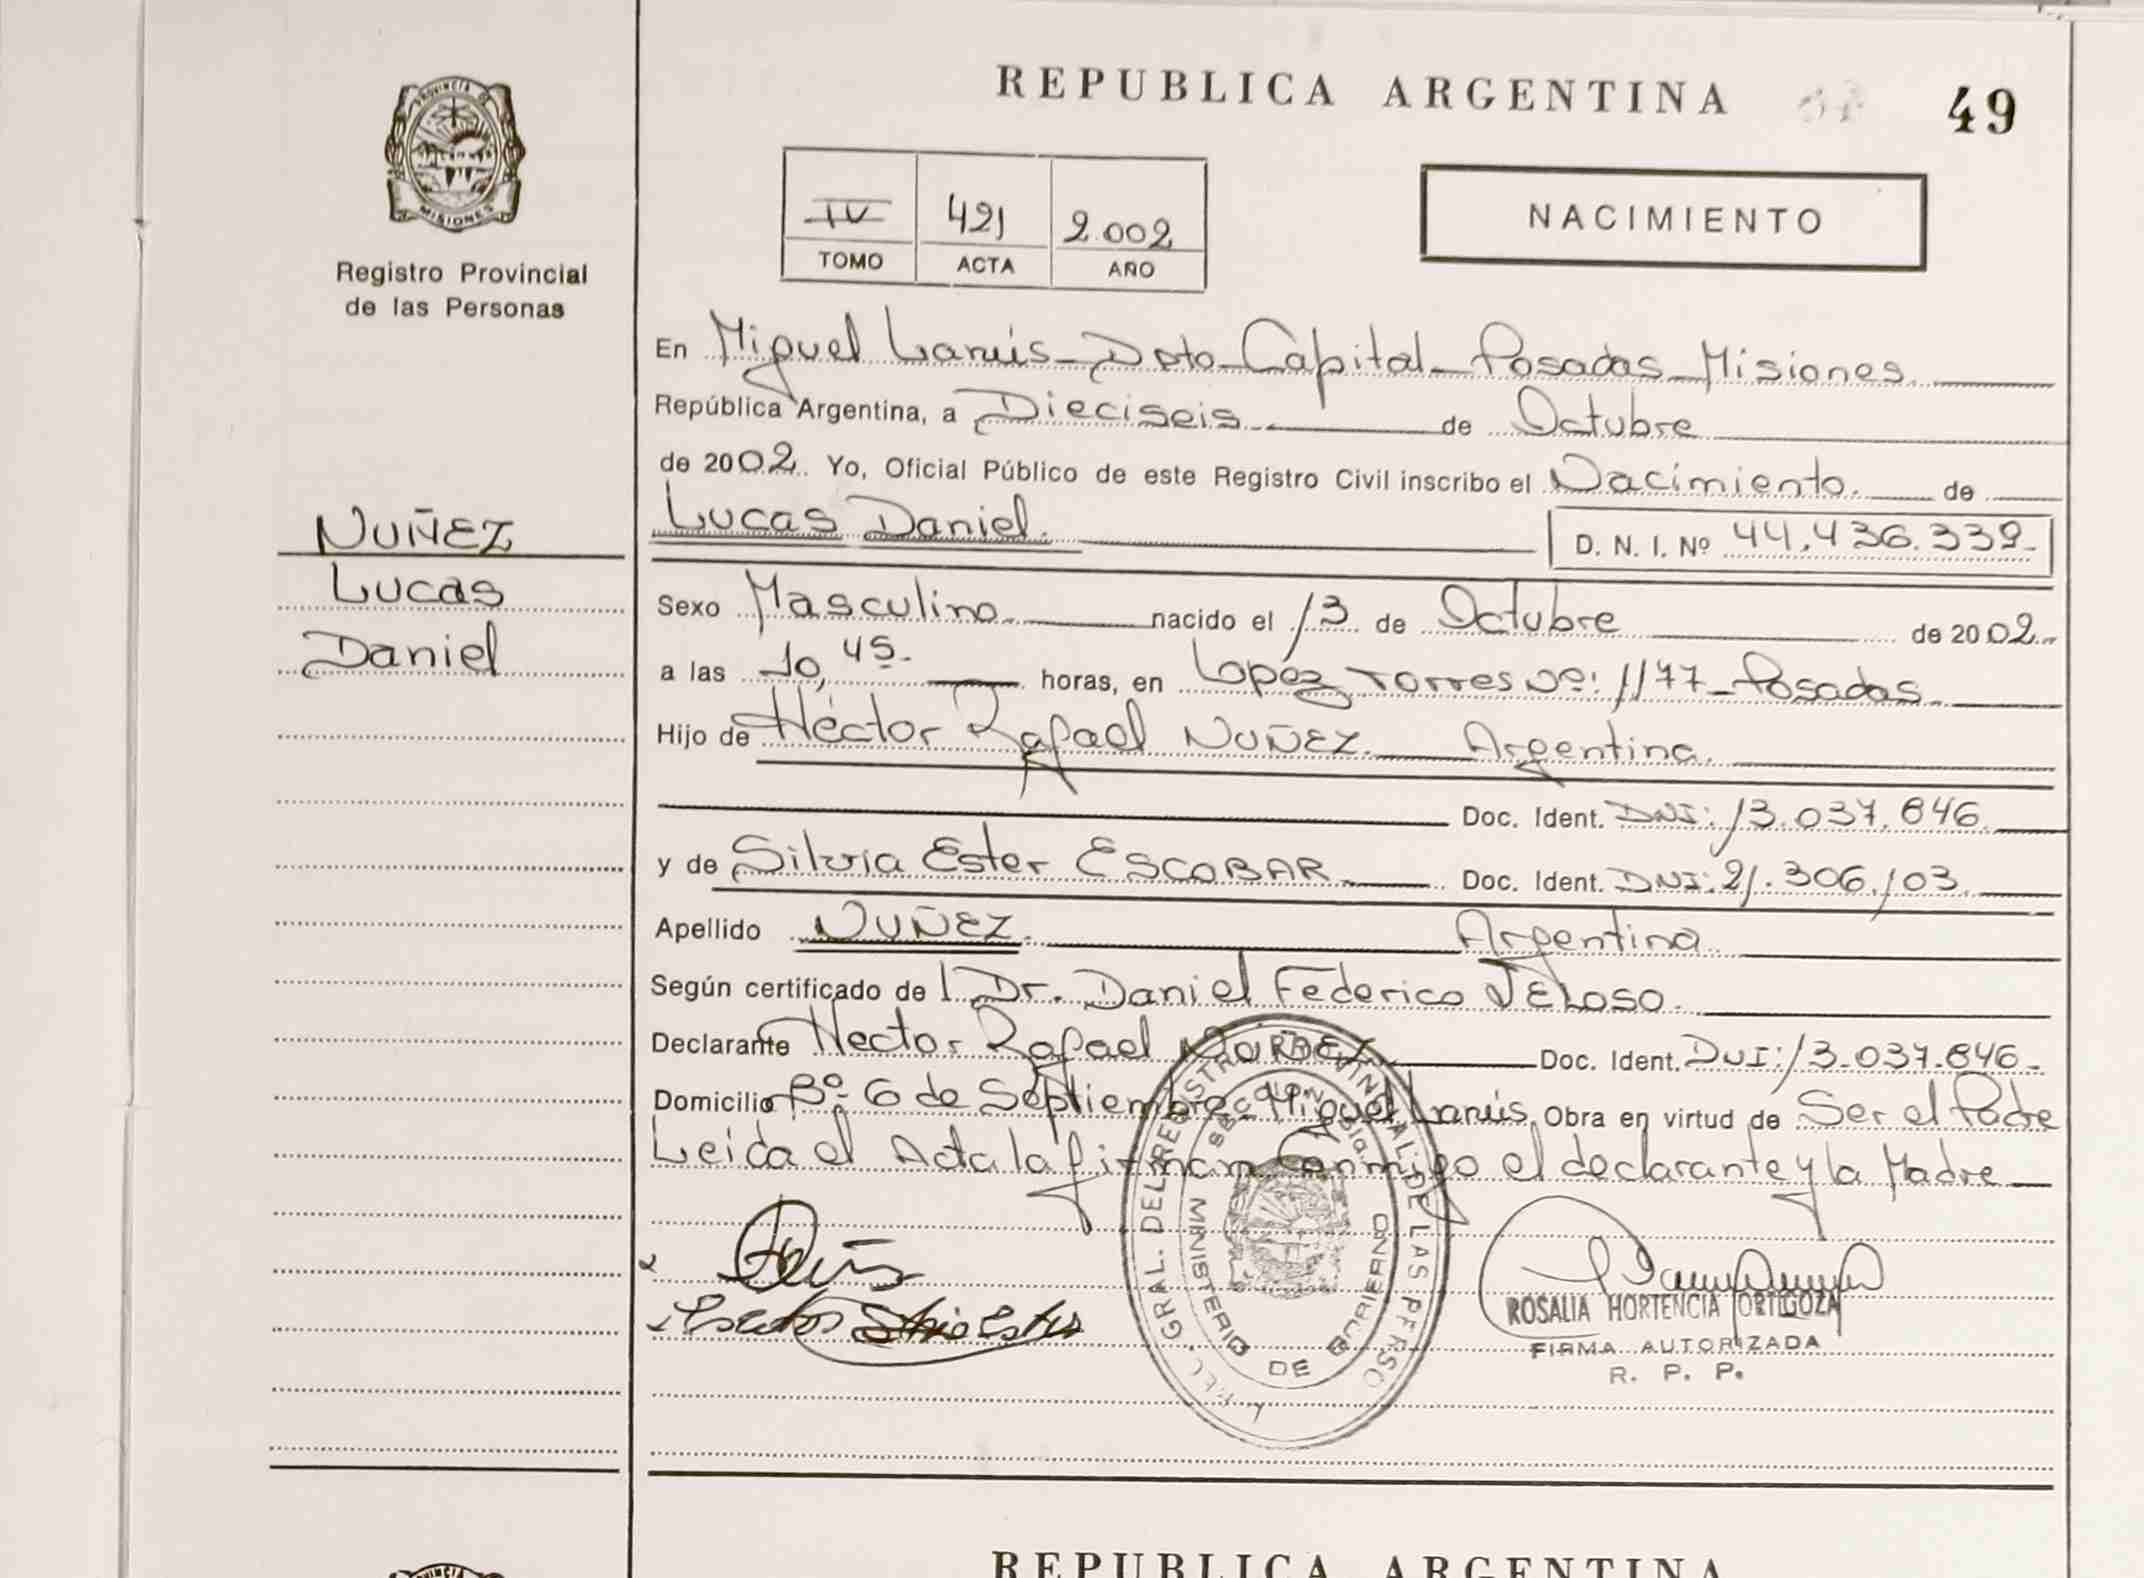 REPUBLICA ARGENTINA
49
PROVINCIA DE
MISIONES
Registro Provincial
de las Personas
IV 421 2.002
TOMO ACTA AÑO
NACIMIENTO
En Miguel Lanús - Dpto Capital - Posadas - Misiones
República Argentina, a Dieciseis de Octubre
de 2002. Yo, Oficial Público de este Registro Civil inscribo el Nacimiento. de
NUÑEZ
Lucas
Daniel
Lucas Daniel. D. N. I. Nº 44.436.339.
Sexo Masculino nacido el 13 de Octubre de 2002
a las 10,45. horas, en Lopéz Torres Nº: 1177 - Posadas.
Hijo de Héctor Rafael NUÑEZ. Argentina.
Doc. Ident. DNI: 13.037.846.
y de Silvia Ester ESCOBAR Doc. Ident. DNI: 21.306.103.
Apellido NUÑEZ. Argentina
Según certificado de l Dr. Daniel Federico VELOSO.
Declarante Hector Rafael Doc. Ident. DNI: 13.037.846.
Domicilio Bº 6 de Septiembre - Miguel Lanús. Obra en virtud de Ser el Padre
Leida el Acta la firman Conmigo el declarante y la Madre
GRAL. DEL REGISTRO PROVINCIAL DE LAS PERSO
MINISTERIO DE GOBIERNO
ROSALIA HORTENCIA ORTIGOZA
FIRMA AUTORIZADA
R. P. P.
REPUBLICA ARGENTINA